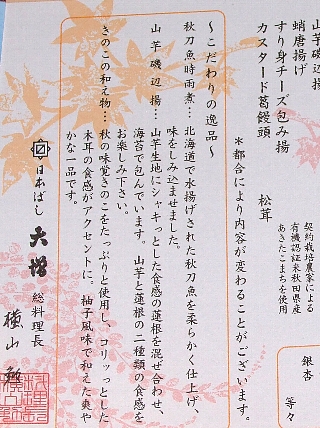 山芋磯辺揚
蛸唐揚げ
すり身チーズ包み揚
カスタード葛饅頭
松茸
契約栽培農家による
有機認証米秋田県産
あきたこまちを使用
銀杏
等々
*都合により内容が変わることがございます。
~こだわりの逸品~
秋刀魚時雨煮…北海道で水揚げされた秋刀魚を柔らかく仕上げ、
味をしみ込ませました。
山芋磯辺揚…山芋生地にシャキっとした食感の蓮根を混ぜ合わせ、
海苔で包んでいます。山芋と蓮根の二種類の食感を
お楽しみ下さい。
きのこの和え物…秋の味覚きのこをたっぷりと使用し、コリッっとした
木耳の食感がアクセントに。柚子風味で和えた爽や
かな一品です。
日本ばし 大増 総料理長
横山 勉